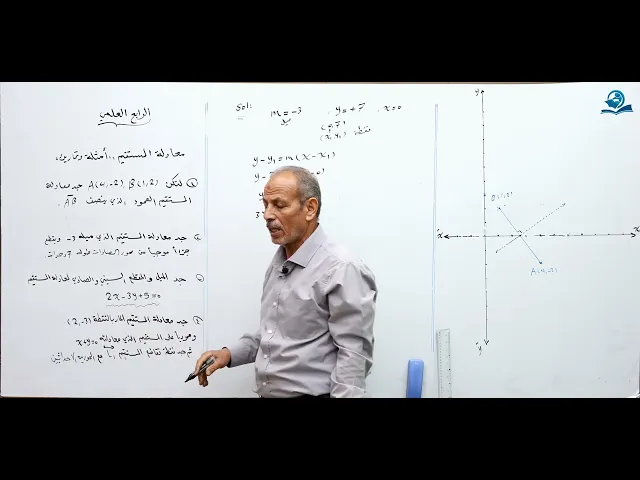 الرابع العلمي
معادلة المستقيم ،، أمثلة وتمارين
لتكن A(4,-2) , B(1,2) جد معادلة
المستقيم العمود الذي ينصف AB
جد معادلة المستقيم الذي ميله 3- ويقطع
جزءاً موجباً من محور الصادات طوله 7 وحدات.
جد الميل والمقطع السيني والصادي لمعادلة المستقيم
2x-3y+5=0
جد معادلة المستقيم المار بالنقطة (2,-3)
وعمودياً على المستقيم الذي معادلته x+y=
ثم جد نقطة تقاطع المستقيم مع المحورين الاحداثيين
Sol:
m=-3 , y=+7 , x=0
(0,7)
(x,y₁) نقطة
y-y₁=m(x-x₁)
y-
y
3
y
B(1,2)
x
x
A(4,-2)
y